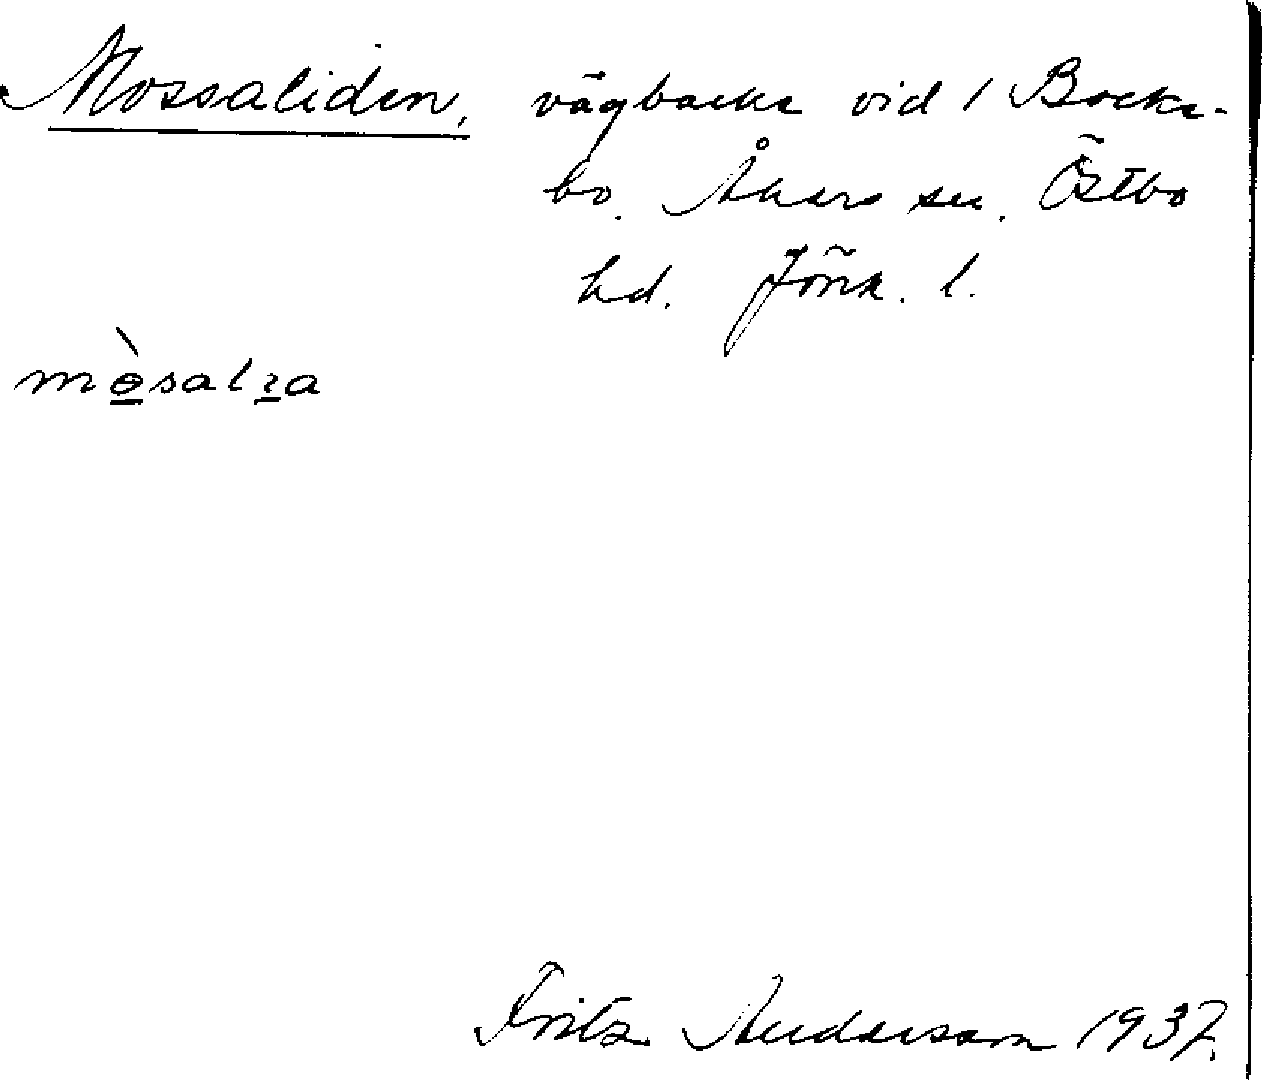 Mossaliden, vägbacke vid 1 Bocke-
bo. Åkers sn. Östbo
hd. Jönk. l.
mòsalıa
Fritz Andersson 1937.